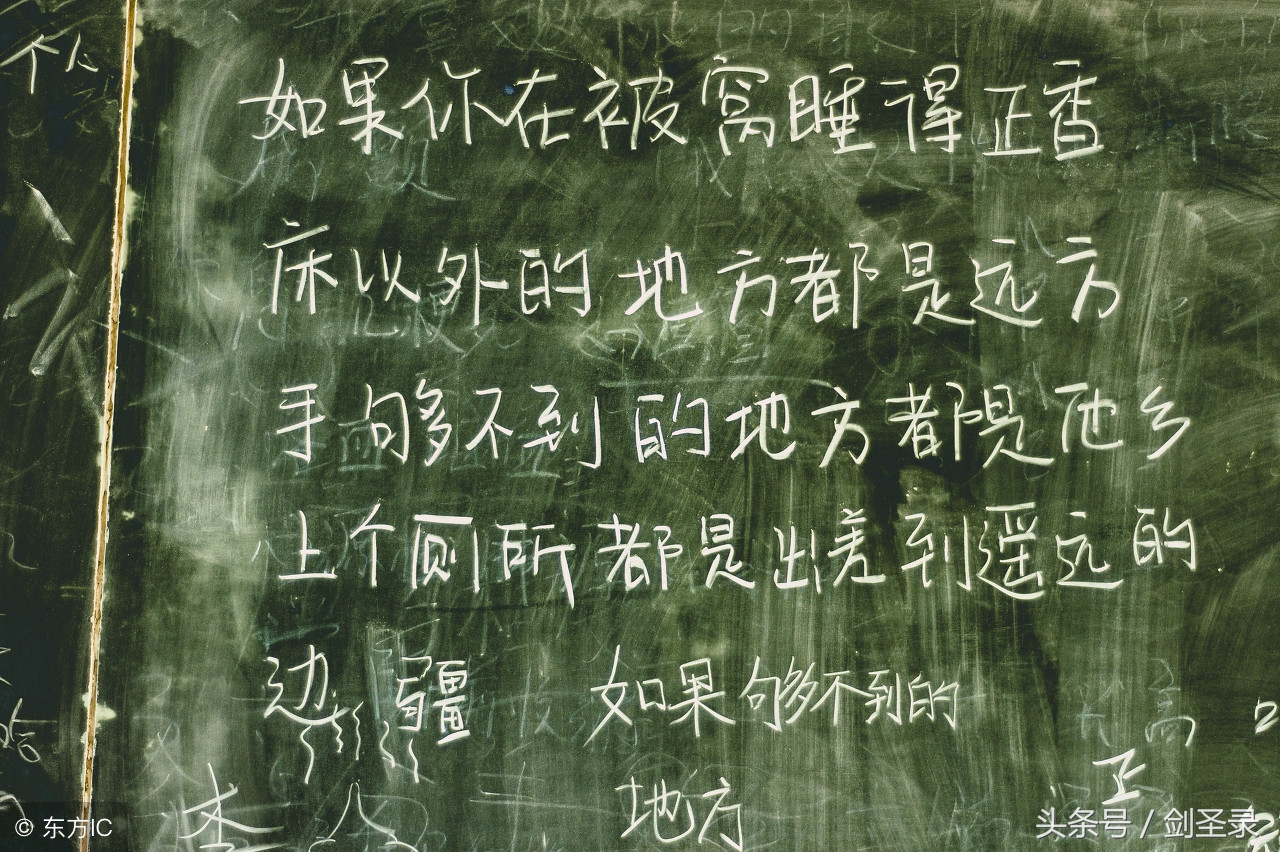 个人
如果你在被窝睡得正香
床以外的地方都是远方
手够不到的地方都是他乡
上个厕所都是出差到遥远的
边疆 如果够不到的
地方
正
© 东方IC
头条号 / 剑圣录